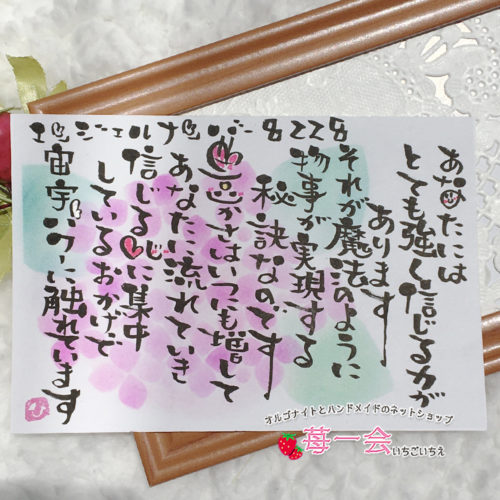 エンジェルナンバー 8228
あなたには
とても強く信じる力が
あります
それが魔法のように
物事が実現する
秘訣なのです
豊かさはいつにも増して
あなたに流れていき
信じる心に集中
しているおかげで
宇宙パワーに触れています
オルゴナイトとハンドメイドのネットショップ
苺一会いちごいちえ